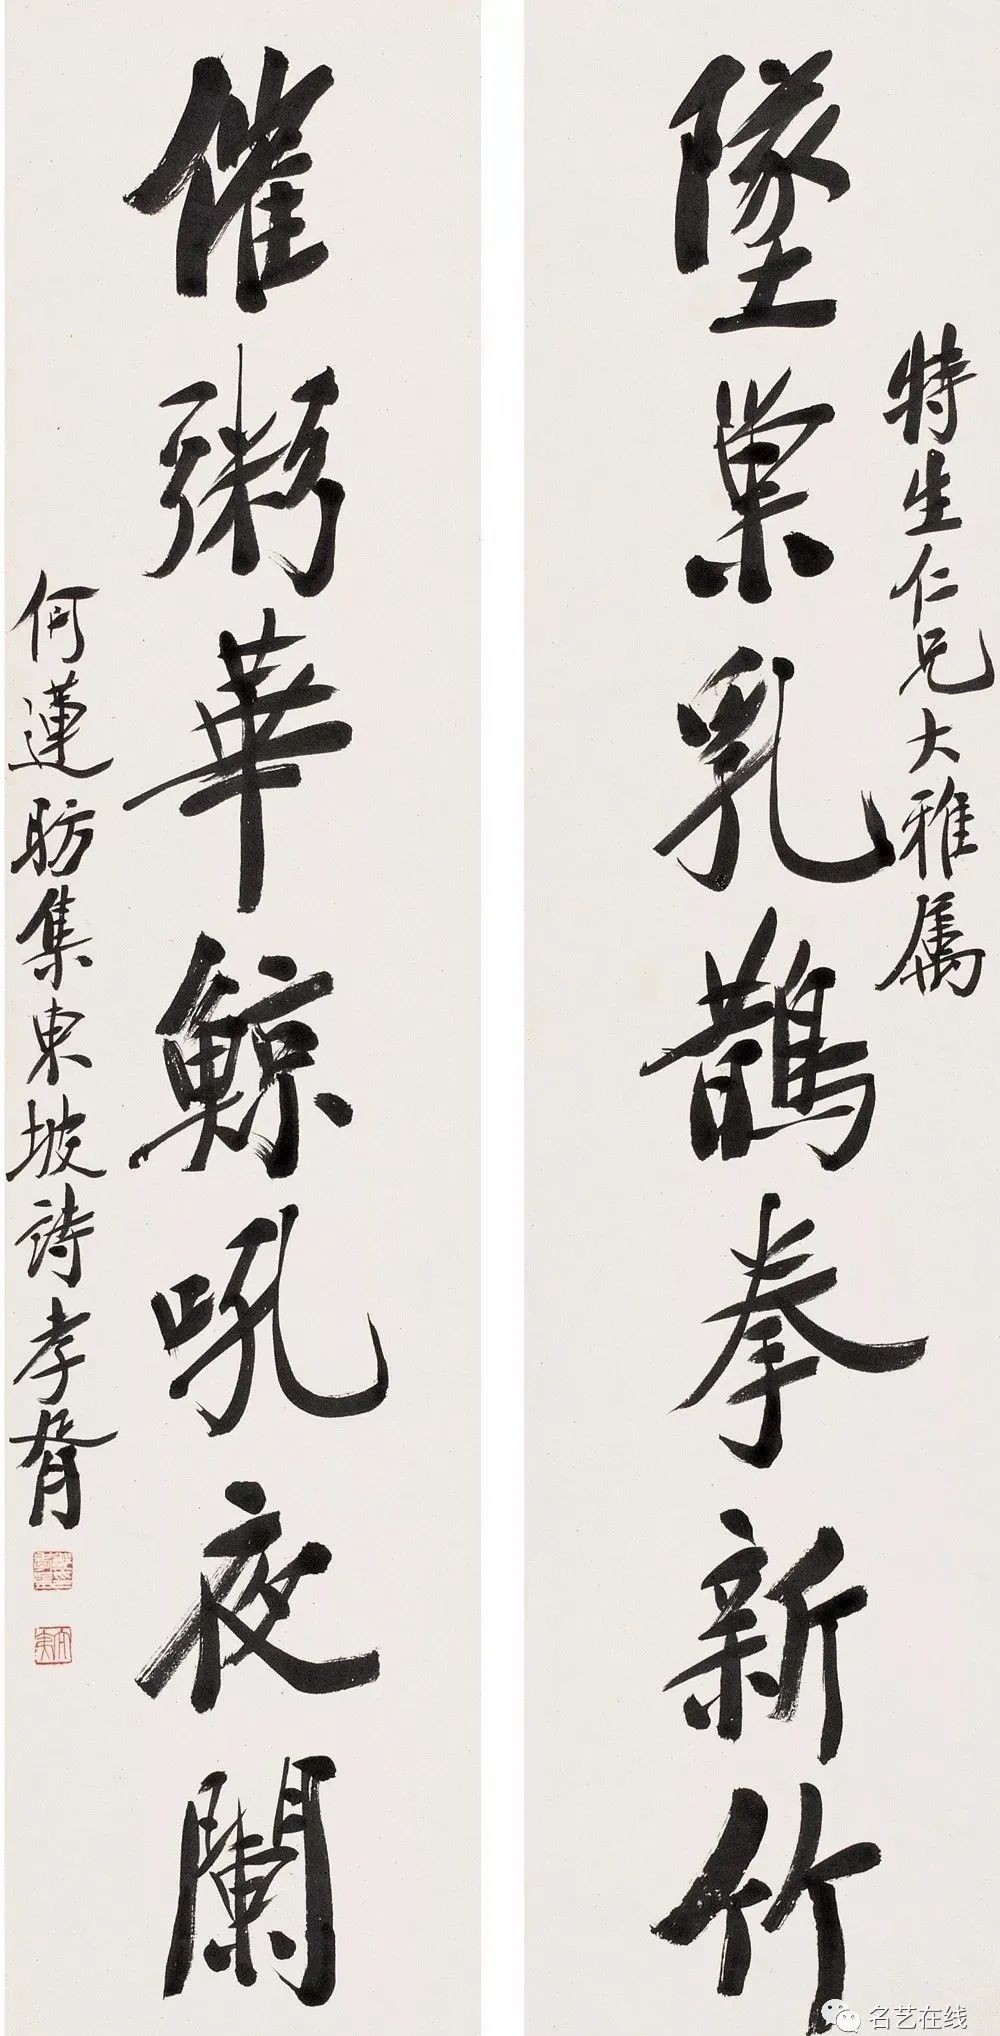 特生仁兄大雅属
墜巢乳鵲拳新竹
催粥華鯨吼夜闌
何蓮舫集東坡詩孝胥
名艺在线